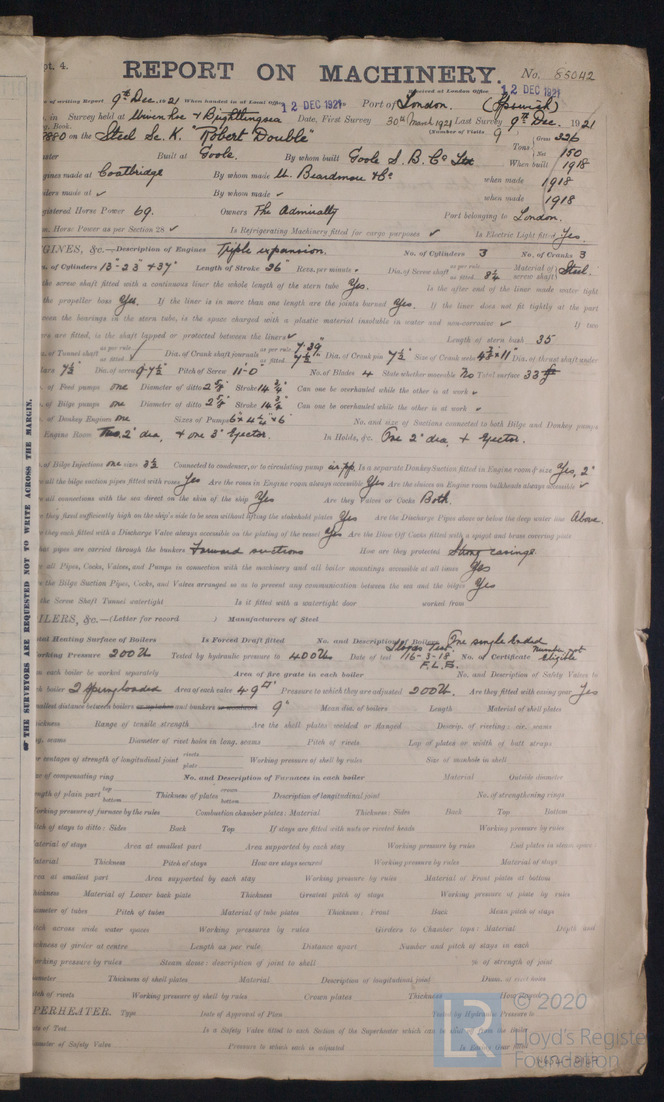 pt. 4.
REPORT ON MACHINERY.
No. 85042
Received at London Office 12 DEC 1921
of writing Report 9th Dec. 1921 When handed in at Local Office 12 DEC 1921 Port of London. (Ipswich)
in Survey held at Wivenhoe & Brightlingsea Date, First Survey 30th March 1921 Last Survey 9th Dec. 1921
Book. (Number of Visits 9
880 on the Steel Sc. K. "Robert Double" Tons Gross 326 Net 150
Built at Goole. By whom built Goole S. B. Co Ltd When built 1918
gines made at Coatbridge By whom made W. Beardmore & Co when made 1918
lers made at ✓ By whom made ✓ when made 1918
gistered Horse Power 69. Owners The Admiralty Port belonging to London.
Horse Power as per Section 28 ✓ Is Refrigerating Machinery fitted for cargo purposes ✓ Is Electric Light fitted Yes.
GINES, &c.—Description of Engines Triple expansion. No. of Cylinders 3 No. of Cranks 3
of Cylinders 13" 23" & 37" Length of Stroke 26" Revs. per minute Dia. of Screw shaft as per rule as fitted 8¼ Material of screw shaft Steel.
the screw shaft fitted with a continuous liner the whole length of the stern tube Yes. Is the after end of the liner made water tight
the propeller boss Yes. If the liner is in more than one length are the joints burned Yes. If the liner does not fit tightly at the part
een the bearings in the stern tube, is the space charged with a plastic material insoluble in water and non-corrosive ✓ If two
rs are fitted, is the shaft lapped or protected between the liners ✓ Length of stern bush 35
of Tunnel shaft as per rule as fitted Dia. of Crank shaft journals as per rule 7.39 as fitted 7½" Dia. of Crank pin 7½" Size of Crank webs Dia. of thrust shaft under
lars 7½" Dia. of screw 9-7½" Pitch of Screw 11-0" No. of Blades 4 State whether moveable No Total surface 33
of Feed pumps one Diameter of ditto 2⅝ Stroke Can one be overhauled while the other is at work ✓
of Bilge pumps one Diameter of ditto 2⅝ Stroke Can one be overhauled while the other is at work ✓
of Donkey Engines one Sizes of Pumps No. and size of Suctions connected to both Bilge and Donkey pumps
Engine Room Two 2" dia, & one 3" Ejector. In Holds, &c. One 2" dia, & Ejector.
of Bilge Injections one sizes 3½ Connected to condenser, or to circulating pump Is a separate Donkey Suction fitted in Engine room & size Yes, 2"
all the bilge suction pipes fitted with roses Yes Are the roses in Engine room always accessible Yes Are the sluices on Engine room bulkheads always accessible ✓
all connections with the sea direct on the skin of the ship Yes Are they Valves or Cocks Both.
they fixed sufficiently high on the ship's side to be seen without lifting the stokehold plates Yes Are the Discharge Pipes above or below the deep water line Above.
they each fitted with a Discharge Valve always accessible on the plating of the vessel Yes Are the Blow Off Cocks fitted with a spigot and brass covering plate
hat pipes are carried through the bunkers Forward suctions How are they protected Strong casings.
all Pipes, Cocks, Valves, and Pumps in connection with the machinery and all boiler mountings accessible at all times Yes
the Bilge Suction Pipes, Cocks, and Valves arranged so as to prevent any communication between the sea and the bilges Yes
the Screw Shaft Tunnel watertight Is it fitted with a watertight door worked from
ILERS, &c.—(Letter for record ) Manufacturers of Steel
tal Heating Surface of Boilers Is Forced Draft fitted No. and Description of Boilers One single ended
orking Pressure 200 lb Tested by hydraulic pressure to 400 lb Date of test 16-3-18 F.L.S. No. of Certificate number not eligible
an each boiler be worked separately Area of fire grate in each boiler No. and Description of Safety Valves to
ch boiler 2 Spring loaded Area of each valve 4.9 Pressure to which they are adjusted 200 lb. Are they fitted with easing gear Yes
allest distance between boilers and bunkers 9" Mean dia. of boilers Length Material of shell plates
hickness Range of tensile strength Are the shell plates welded or flanged Descrip. of riveting: cir. seams
ng. seams Diameter of rivet holes in long. seams Pitch of rivets Lap of plates or width of butt straps
er centages of strength of longitudinal joint rivets plate Working pressure of shell by rules Size of manhole in shell
ze of compensating ring No. and Description of Furnaces in each boiler Material Outside diameter
ength of plain part top bottom Thickness of plates crown bottom Description of longitudinal joint No. of strengthening rings
orking pressure of furnace by the rules Combustion chamber plates: Material Thickness: Sides Back Top Bottom
itch of stays to ditto: Sides Back Top If stays are fitted with nuts or riveted heads Working pressure by rules
aterial of stays Area at smallest part Area supported by each stay Working pressure by rules End plates in steam space
aterial Thickness Pitch of stays How are stays secured Working pressure by rules Material of stays
rea at smallest part Area supported by each stay Working pressure by rules Material of Front plates at bottom
hickness Material of Lower back plate Thickness Greatest pitch of stays Working pressure of plate by rules
iameter of tubes Pitch of tubes Material of tube plates Thickness: Front Back Mean pitch of stays
itch across wide water spaces Working pressures by rules Girders to Chamber tops: Material Depth and
ickness of girder at centre Length as per rule Distance apart Number and pitch of stays in each
orking pressure by rules Steam dome: description of joint to shell % of strength of joint
iameter Thickness of shell plates Material Description of longitudinal joint Diam. of rivet holes
itch of rivets Working pressure of shell by rules Crown plates Thickness How stayed
PERHEATER. Type Date of Approval of Plan Tested by Hydraulic Pressure to
ate of Test Is a Safety Valve fitted to each Section of the Superheater which can be shut off from the Boiler
iameter of Safety Valve Pressure to which each is adjusted Is Easing Gear fitted
THE SURVEYORS ARE REQUESTED NOT TO WRITE ACROSS THE MARGIN.
LR
© 2020
Lloyd's Register
Foundation